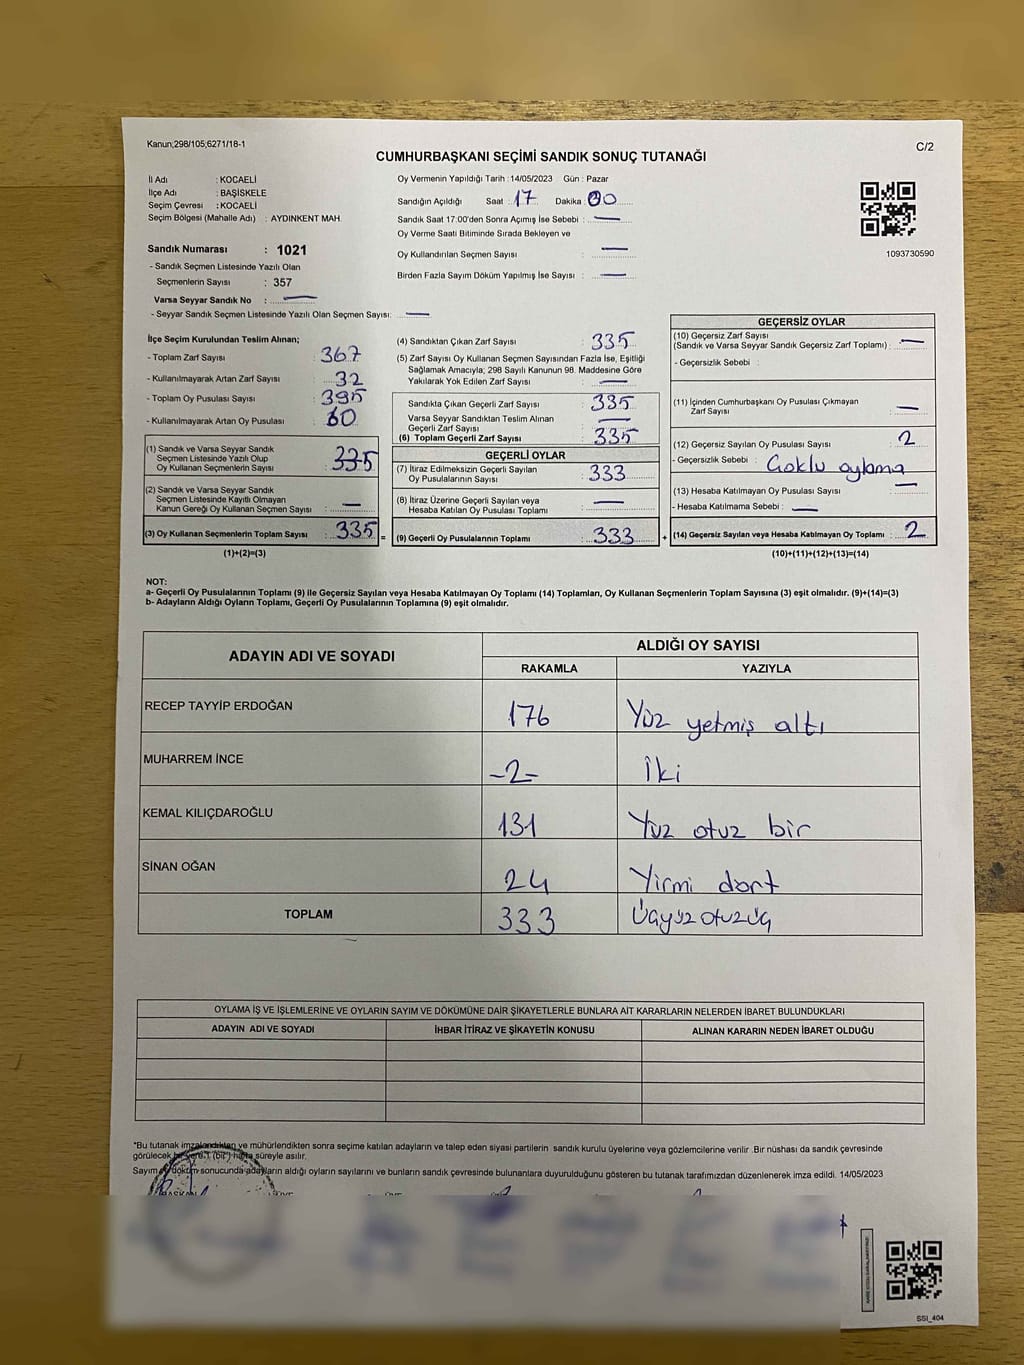 Kanun;298/105;6271/18-1
C/2
CUMHURBAŞKANI SEÇİMİ SANDIK SONUÇ TUTANAĞI
İl Adı : KOCAELİ
İlçe Adı : BAŞİSKELE
Seçim Çevresi : KOCAELİ
Seçim Bölgesi (Mahalle Adı) : AYDINKENT MAH.
Sandık Numarası : 1021
- Sandık Seçmen Listesinde Yazılı Olan
Seçmenlerin Sayısı : 357
Varsa Seyyar Sandık No : —
- Seyyar Sandık Seçmen Listesinde Yazılı Olan Seçmen Sayısı: —
Oy Vermenin Yapıldığı Tarih : 14/05/2023 Gün : Pazar
Sandığın Açıldığı Saat : 17 Dakika : 00
Sandık Saat 17:00'den Sonra Açımış İse Sebebi : —
Oy Verme Saati Bitiminde Sırada Bekleyen ve
Oy Kullandırılan Seçmen Sayısı : —
Birden Fazla Sayım Döküm Yapılmış İse Sayısı : —
1093730590
İlçe Seçim Kurulundan Teslim Alınan;
- Toplam Zarf Sayısı : 367
- Kullanılmayarak Artan Zarf Sayısı : 32
- Toplam Oy Pusulası Sayısı : 395
- Kullanılmayarak Artan Oy Pusulası : 60
(1) Sandık ve Varsa Seyyar Sandık
Seçmen Listesinde Yazılı Olup
Oy Kullanan Seçmenlerin Sayısı : 335
(2) Sandık ve Varsa Seyyar Sandık
Seçmen Listesinde Kayıtlı Olmayan
Kanun Gereği Oy Kullanan Seçmen Sayısı : —
(3) Oy Kullanan Seçmenlerin Toplam Sayısı : 335 =
(1)+(2)=(3)
(4) Sandıktan Çıkan Zarf Sayısı : 335
(5) Zarf Sayısı Oy Kullanan Seçmen Sayısından Fazla İse, Eşitliği
Sağlamak Amacıyla; 298 Sayılı Kanunun 98. Maddesine Göre
Yakılarak Yok Edilen Zarf Sayısı : —
Sandıkta Çıkan Geçerli Zarf Sayısı : 335
Varsa Seyyar Sandıktan Teslim Alınan
Geçerli Zarf Sayısı : —
(6) Toplam Geçerli Zarf Sayısı : 335
GEÇERLİ OYLAR
(7) İtiraz Edilmeksizin Geçerli Sayılan
Oy Pusulalarının Sayısı : 333
(8) İtiraz Üzerine Geçerli Sayılan veya
Hesaba Katılan Oy Pusulası Toplamı : —
(9) Geçerli Oy Pusulalarının Toplamı : 333 +
GEÇERSİZ OYLAR
(10) Geçersiz Zarf Sayısı
(Sandık ve Varsa Seyyar Sandık Geçersiz Zarf Toplamı) : —
- Geçersizlik Sebebi :
(11) İçinden Cumhurbaşkanı Oy Pusulası Çıkmayan
Zarf Sayısı : —
(12) Geçersiz Sayılan Oy Pusulası Sayısı : 2
- Geçersizlik Sebebi : Çoklu oylama
(13) Hesaba Katılmayan Oy Pusulası Sayısı : —
- Hesaba Katılmama Sebebi : —
(14) Geçersiz Sayılan veya Hesaba Katılmayan Oy Toplamı : 2
(10)+(11)+(12)+(13)=(14)
NOT:
a- Geçerli Oy Pusulalarının Toplamı (9) ile Geçersiz Sayılan veya Hesaba Katılmayan Oy Toplamı (14) Toplamları, Oy Kullanan Seçmenlerin Toplam Sayısına (3) eşit olmalıdır. (9)+(14)=(3)
b- Adayların Aldığı Oyların Toplamı, Geçerli Oy Pusulalarının Toplamına (9) eşit olmalıdır.
ADAYIN ADI VE SOYADI ALDIĞI OY SAYISI
RAKAMLA YAZIYLA
RECEP TAYYİP ERDOĞAN 176 Yüz yetmiş altı
MUHARREM İNCE -2- İki
KEMAL KILIÇDAROĞLU 131 Yüz otuz bir
SİNAN OĞAN 24 Yirmi dört
TOPLAM 333 Üçyüzotuzüç
OYLAMA İŞ VE İŞLEMLERİNE VE OYLARIN SAYIM VE DÖKÜMÜNE DAİR ŞİKAYETLERLE BUNLARA AİT KARARLARIN NELERDEN İBARET BULUNDUKLARI
ADAYIN ADI VE SOYADI İHBAR İTİRAZ VE ŞİKAYETİN KONUSU ALINAN KARARIN NEDEN İBARET OLDUĞU
*Bu tutanak imzalandıktan ve mühürlendikten sonra seçime katılan adayların ve talep eden siyasi partilerin sandık kurulu üyelerine veya gözlemcilerine verilir. Bir nüshası da sandık çevresinde
görülecek bir yere 1 (bir) hafta süreyle asılır.
Sayım ve döküm sonucunda adayların aldığı oyların sayılarını ve bunların sandık çevresinde bulunanlara duyurulduğunu gösteren bu tutanak tarafımızdan düzenlenerek imza edildi. 14/05/2023
BAŞKAN
SSI_404